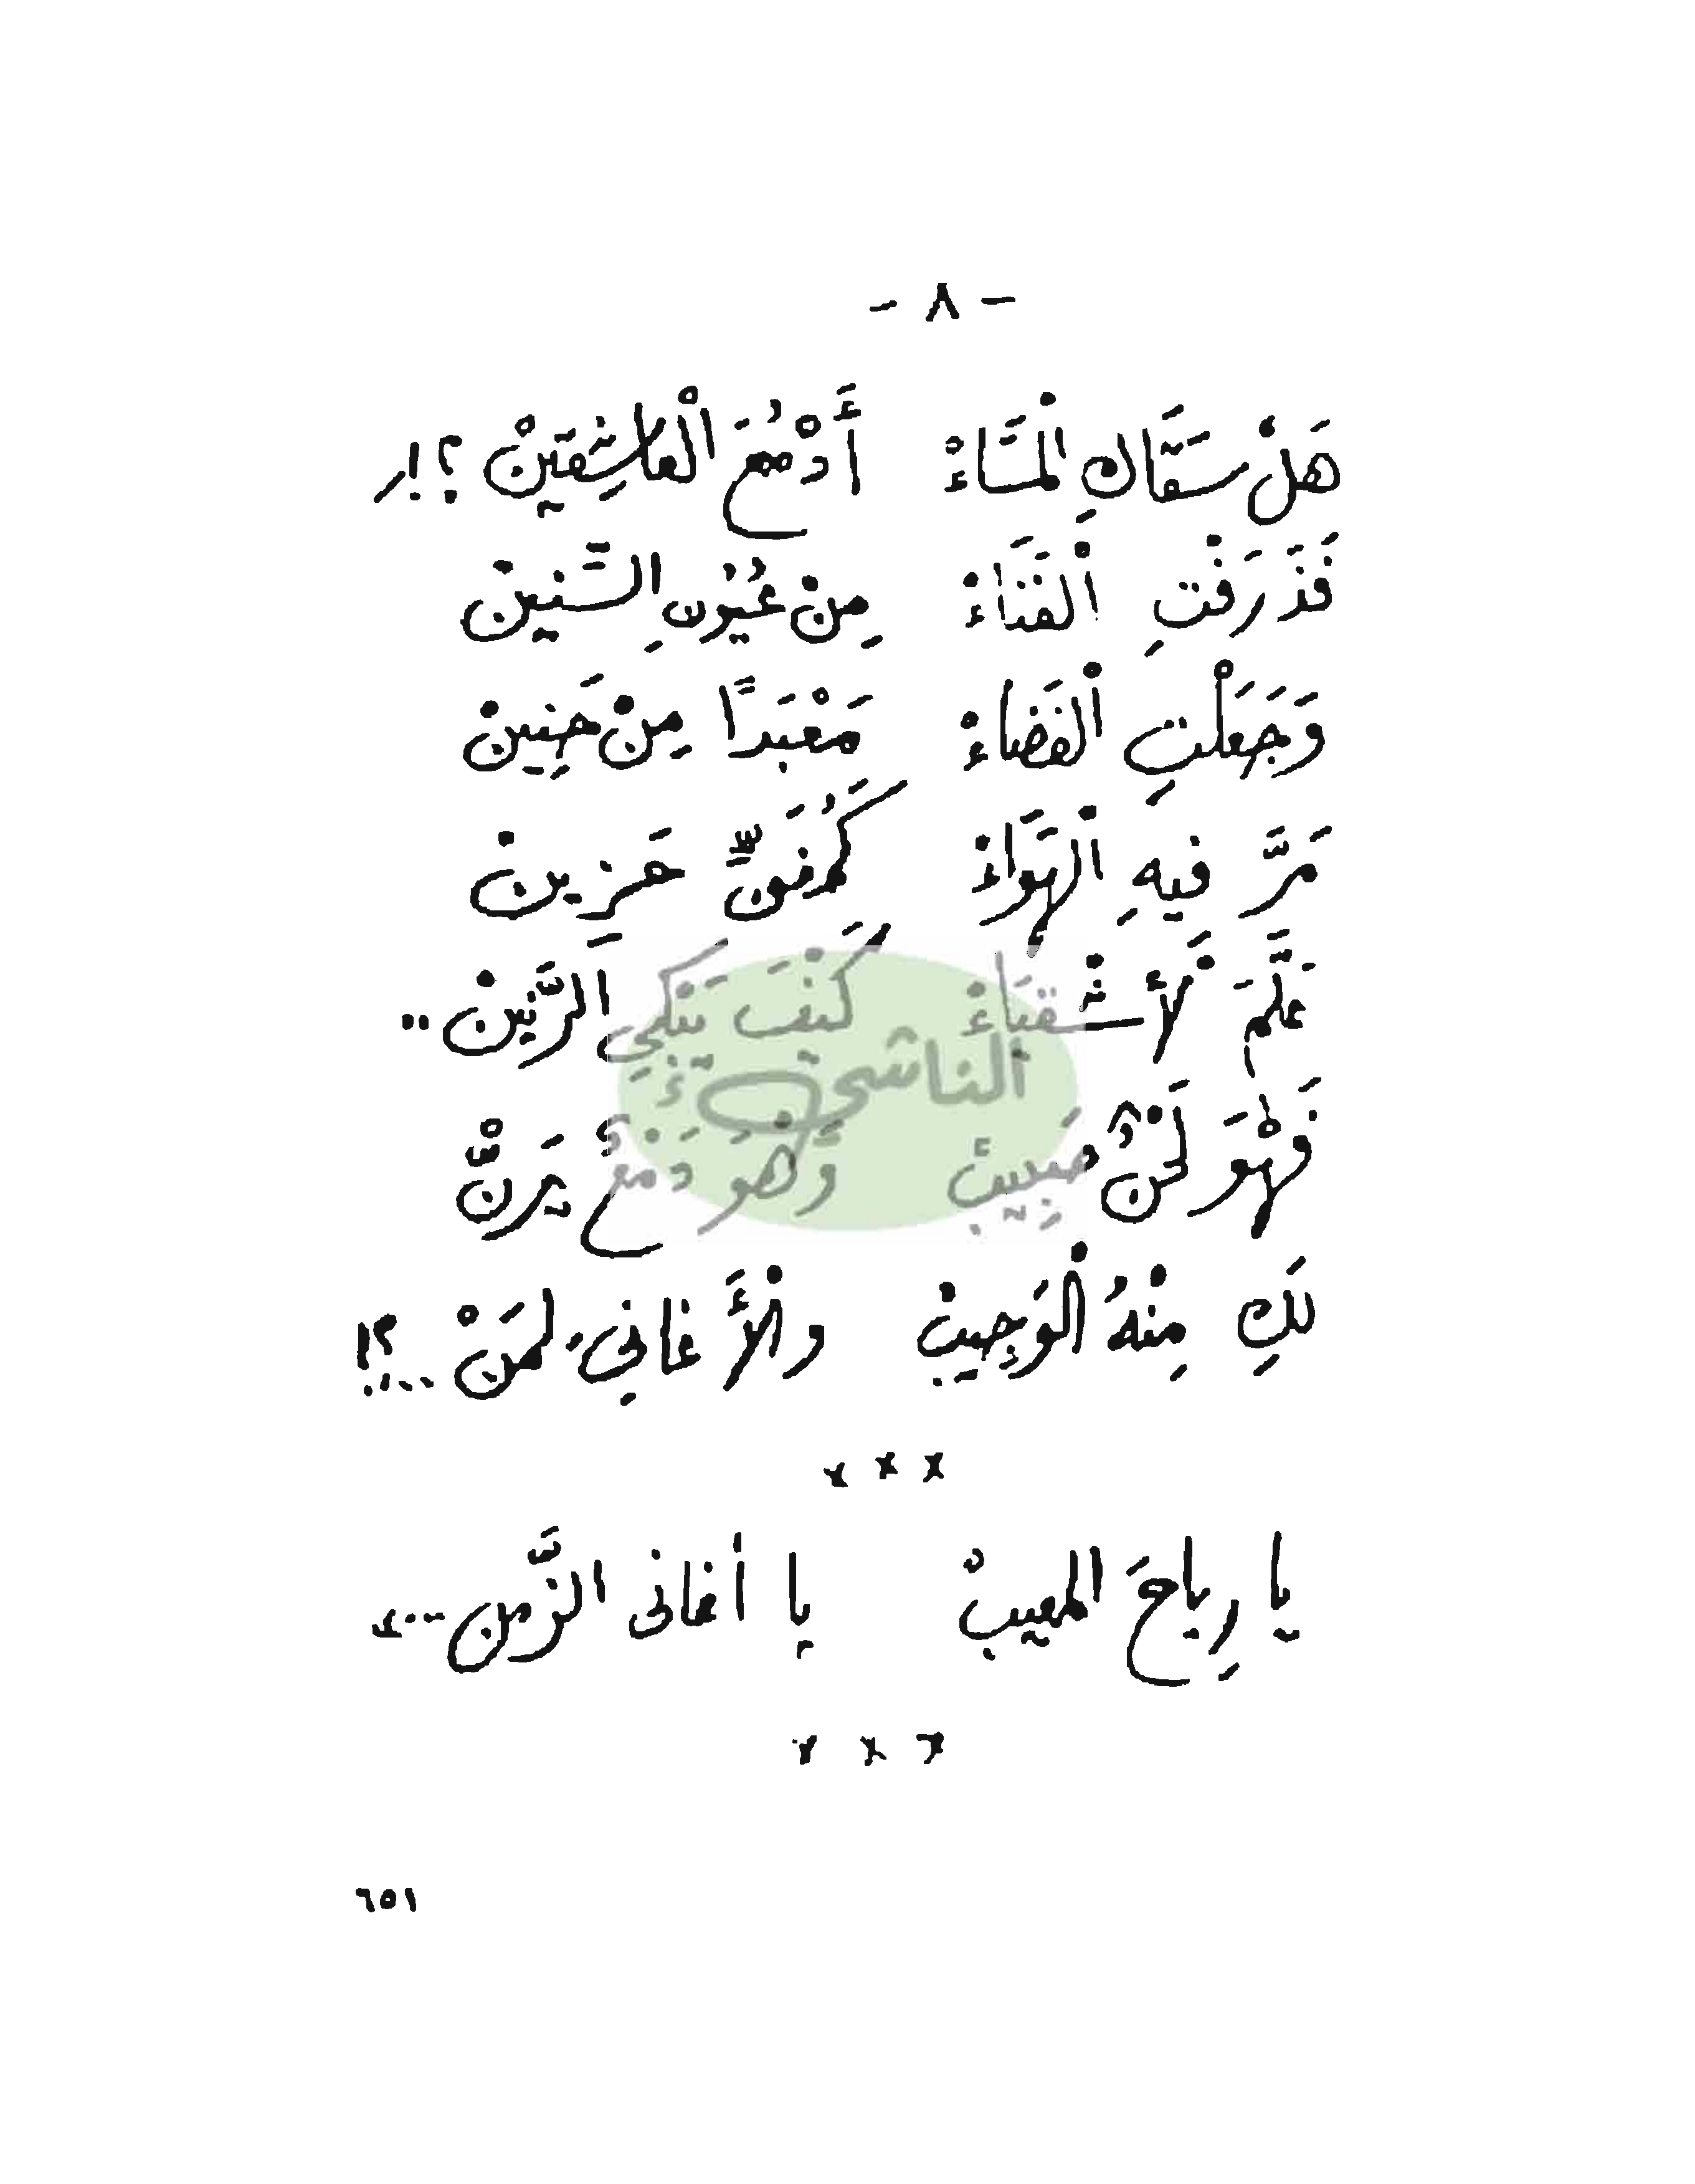 - ٨ -
هَلْ سَقَاكِ الْمَسَاءْ أَدْمُعَ الْعَاشِقِينْ ؟!
فَذَرَفْتِ الْغِنَاءْ مِنْ عُيُونِ السِّنِينْ
وَجَعَلْتِ الْفَضَاءْ مَعْبَدًا مِنْ حَنِينْ
مَرَّ فِيهِ الْهَوَاءْ كَمُغَنٍّ حَزِينْ
عَلَّمَ الْأَشْقِيَاءْ كَيْفَ يَبْكِي الرَّنِينْ ..
الناشئ
فَهْوَ لَحْنٌ حَبِيبْ وَهْوَ دَمْعٌ يَرِنّْ
لَكِ مِنْهُ الْوَجِيبْ والْأَغَانِي لِمَنْ ....؟!
* * *
يا رِياحَ المغيبْ يا أغانى الزَّمن ...
* * *
٦٥١